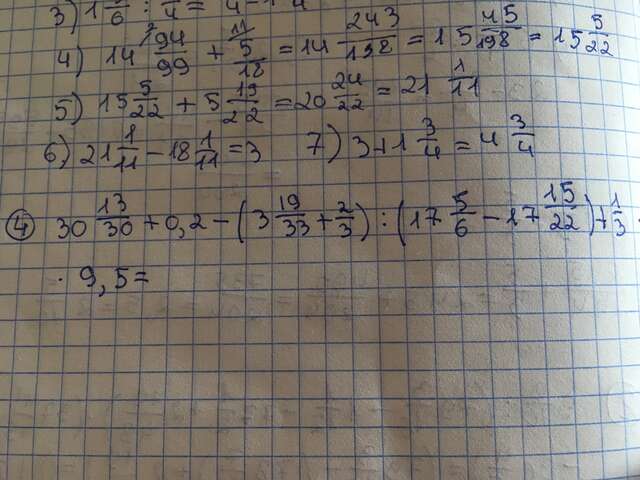 3) 1 2/6 : 1/4 =
4) 14 94/99 + 5/18 = 14 243/198 = 15 45/198 = 15 5/22
5) 15 5/22 + 5 19/22 = 20 24/22 = 21 1/11
6) 21 1/11 - 18 1/11 = 3 7) 3 + 1 3/4 = 4 3/4
④ 30 13/30 + 0,2 - (3 19/33 + 2/3) : (17 5/6 - 17 15/22) + 1/3 ·
· 9,5 =